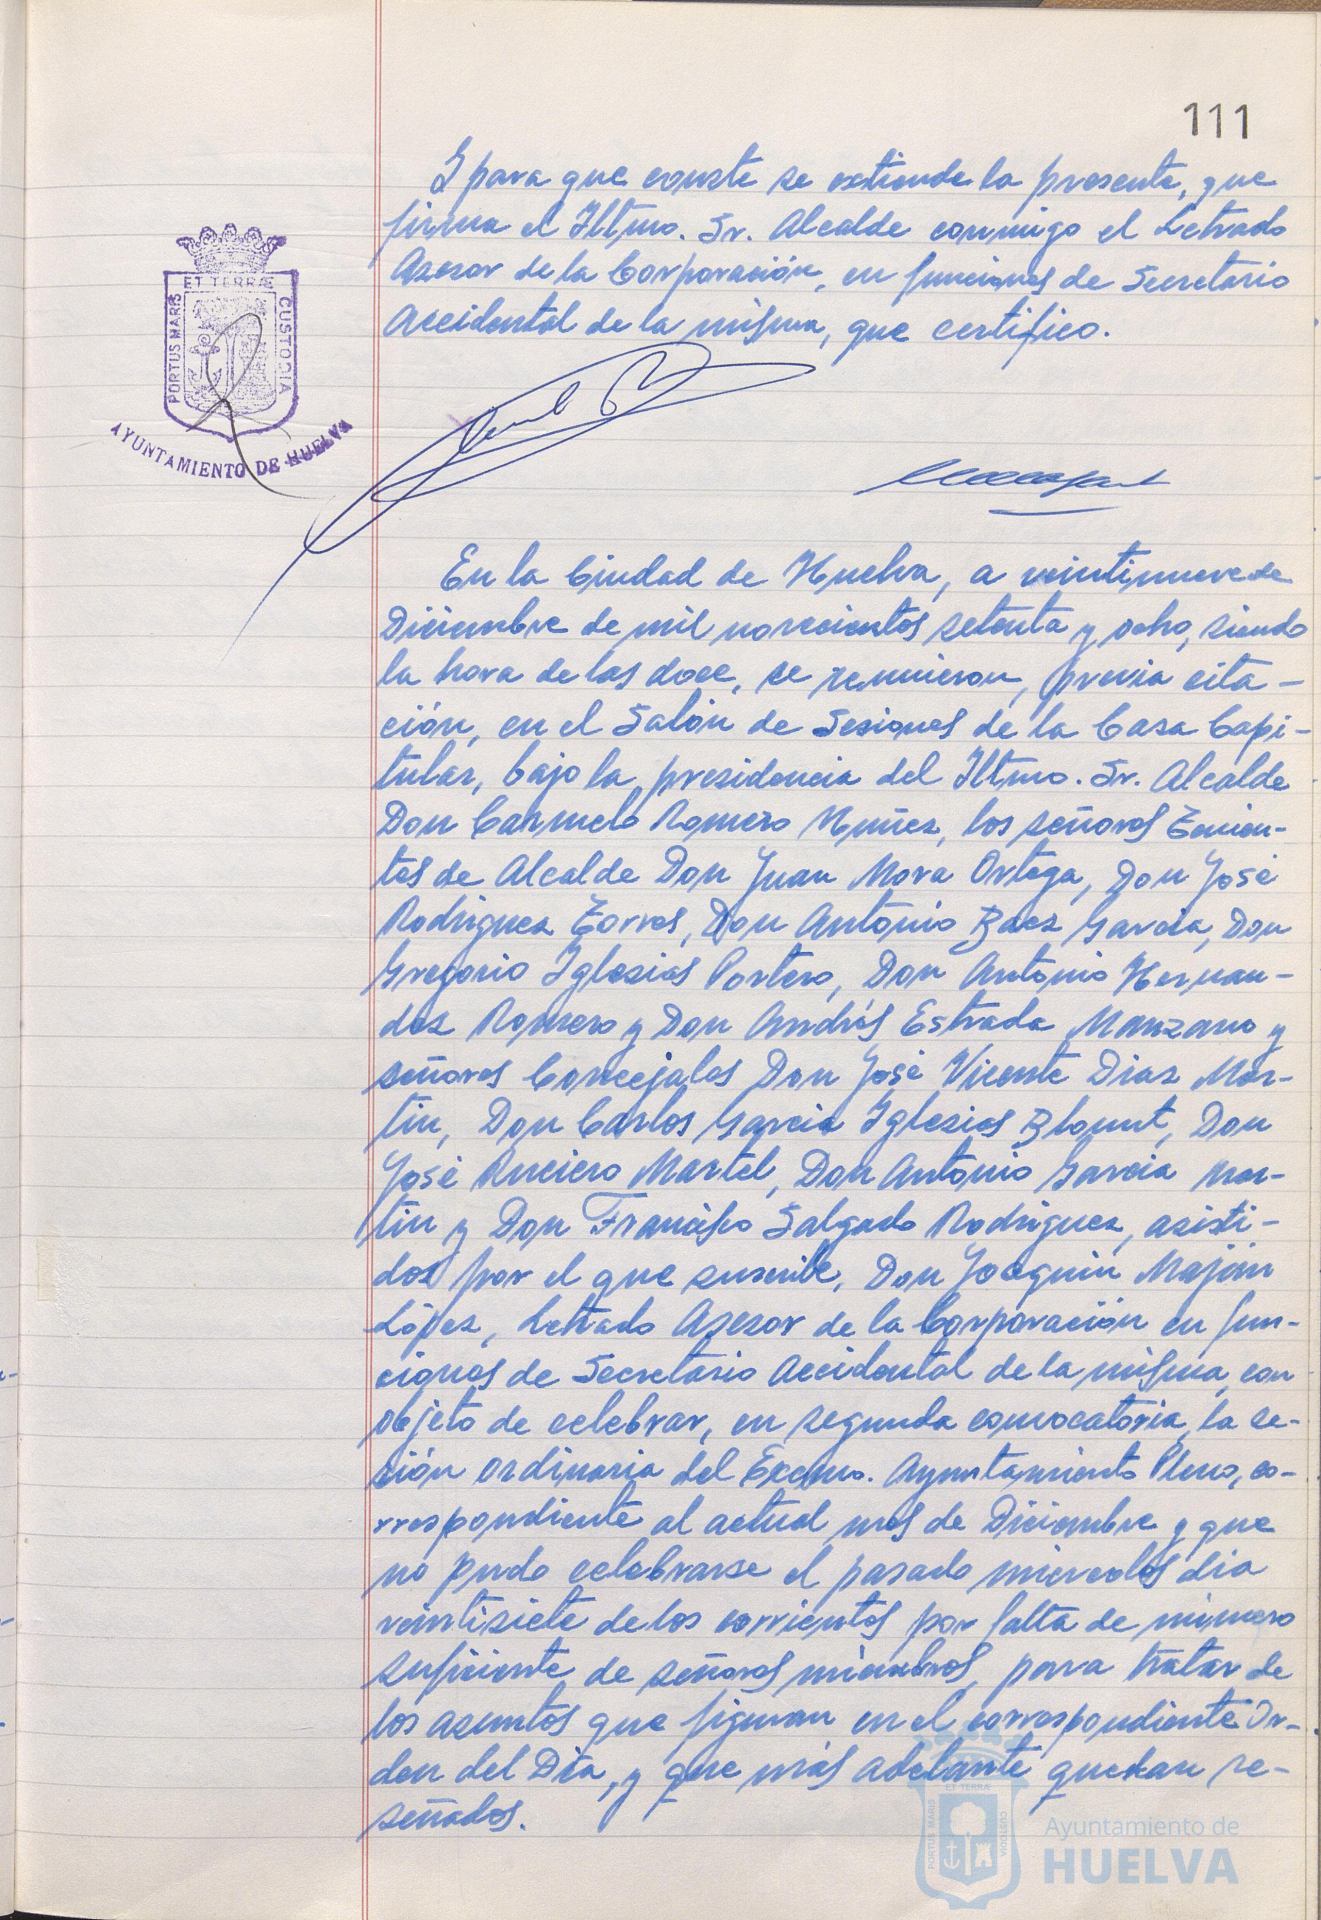 111
Y para que conste se extiende la presente, que
firma el Iltmo. Sr. Alcalde conmigo el Letrado
Asesor de la Corporación, en funciones de Secretario
Accidental de la misma, que certifico.
ET TERRÆ
PORTUS MARIS
CUSTODIA
AYUNTAMIENTO DE HUELVA
En la Ciudad de Huelva, a veintinueve de
Diciembre de mil novecientos setenta y ocho, siendo
la hora de las doce, se reunieron, previa cita-
ción, en el Salón de Sesiones de la Casa Capi-
tular, bajo la presidencia del Iltmo. Sr. Alcalde
Don Carmelo Romero Nuñez, los señores Tenien-
tes de Alcalde Don Juan Mora Ortega, Don José
Rodriguez Torres, Don Antonio Baez Garcia, Don
Gregorio Iglesias Portero, Don Antonio Hernan-
dez Romero y Don Andrés Estrada Manzano y
señores Concejales Don José Vicente Diaz Mar-
tin, Don Carlos Garcia Iglesias Blount, Don
José Anciero Martel, Don Antonio Garcia Mar-
tin y Don Francisco Salgado Rodriguez, asisti-
dos por el que suscribe, Don Joaquin Majón
López, Letrado Asesor de la Corporación en fun-
ciones de Secretario Accidental de la misma, con
objeto de celebrar, en segunda convocatoria, la se-
sión ordinaria del Excmo. Ayuntamiento Pleno, co-
rrespondiente al actual mes de Diciembre y que
no pudo celebrarse el pasado miercoles dia
veintisiete de los corrientes por falta de número
suficiente de señores miembros, para tratar de
los asuntos que figuran en el correspondiente Or-
den del Dia, y que más adelante quedan re-
señados.
ET TERRÆ
PORTUS MARIS
CUSTODIA
Ayuntamiento de
HUELVA